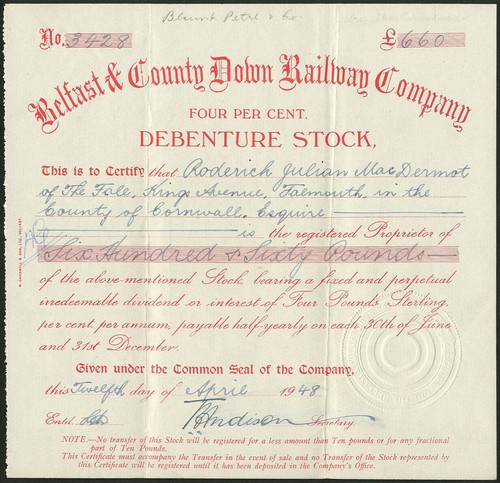 Blount Petre & Co.
No. 3428 £660
Belfast & County Down Railway Company
FOUR PER CENT.
DEBENTURE STOCK,
This is to Certify that Roderick Julian MacDermot
of The Fole, Kings Avenue, Falmouth, in the
County of Cornwall, Esquire
is the registered Proprietor of
Six Hundred & Sixty Pounds
of the above-mentioned Stock, bearing a fixed and perpetual
irredeemable dividend or interest of Four Pounds Sterling,
per cent. per annum, payable half-yearly on each 30th of June
and 31st December.
Given under the Common Seal of the Company,
this Twelfth day of April 1948
Entd. Secretary.
NOTE.—No transfer of this Stock will be registered for a less amount than Ten pounds or for any fractional
part of Ten Pounds.
This Certificate must accompany the Transfer in the event of sale and no Transfer of the Stock represented by
this Certificate will be registered until it has been deposited in the Company's Office.